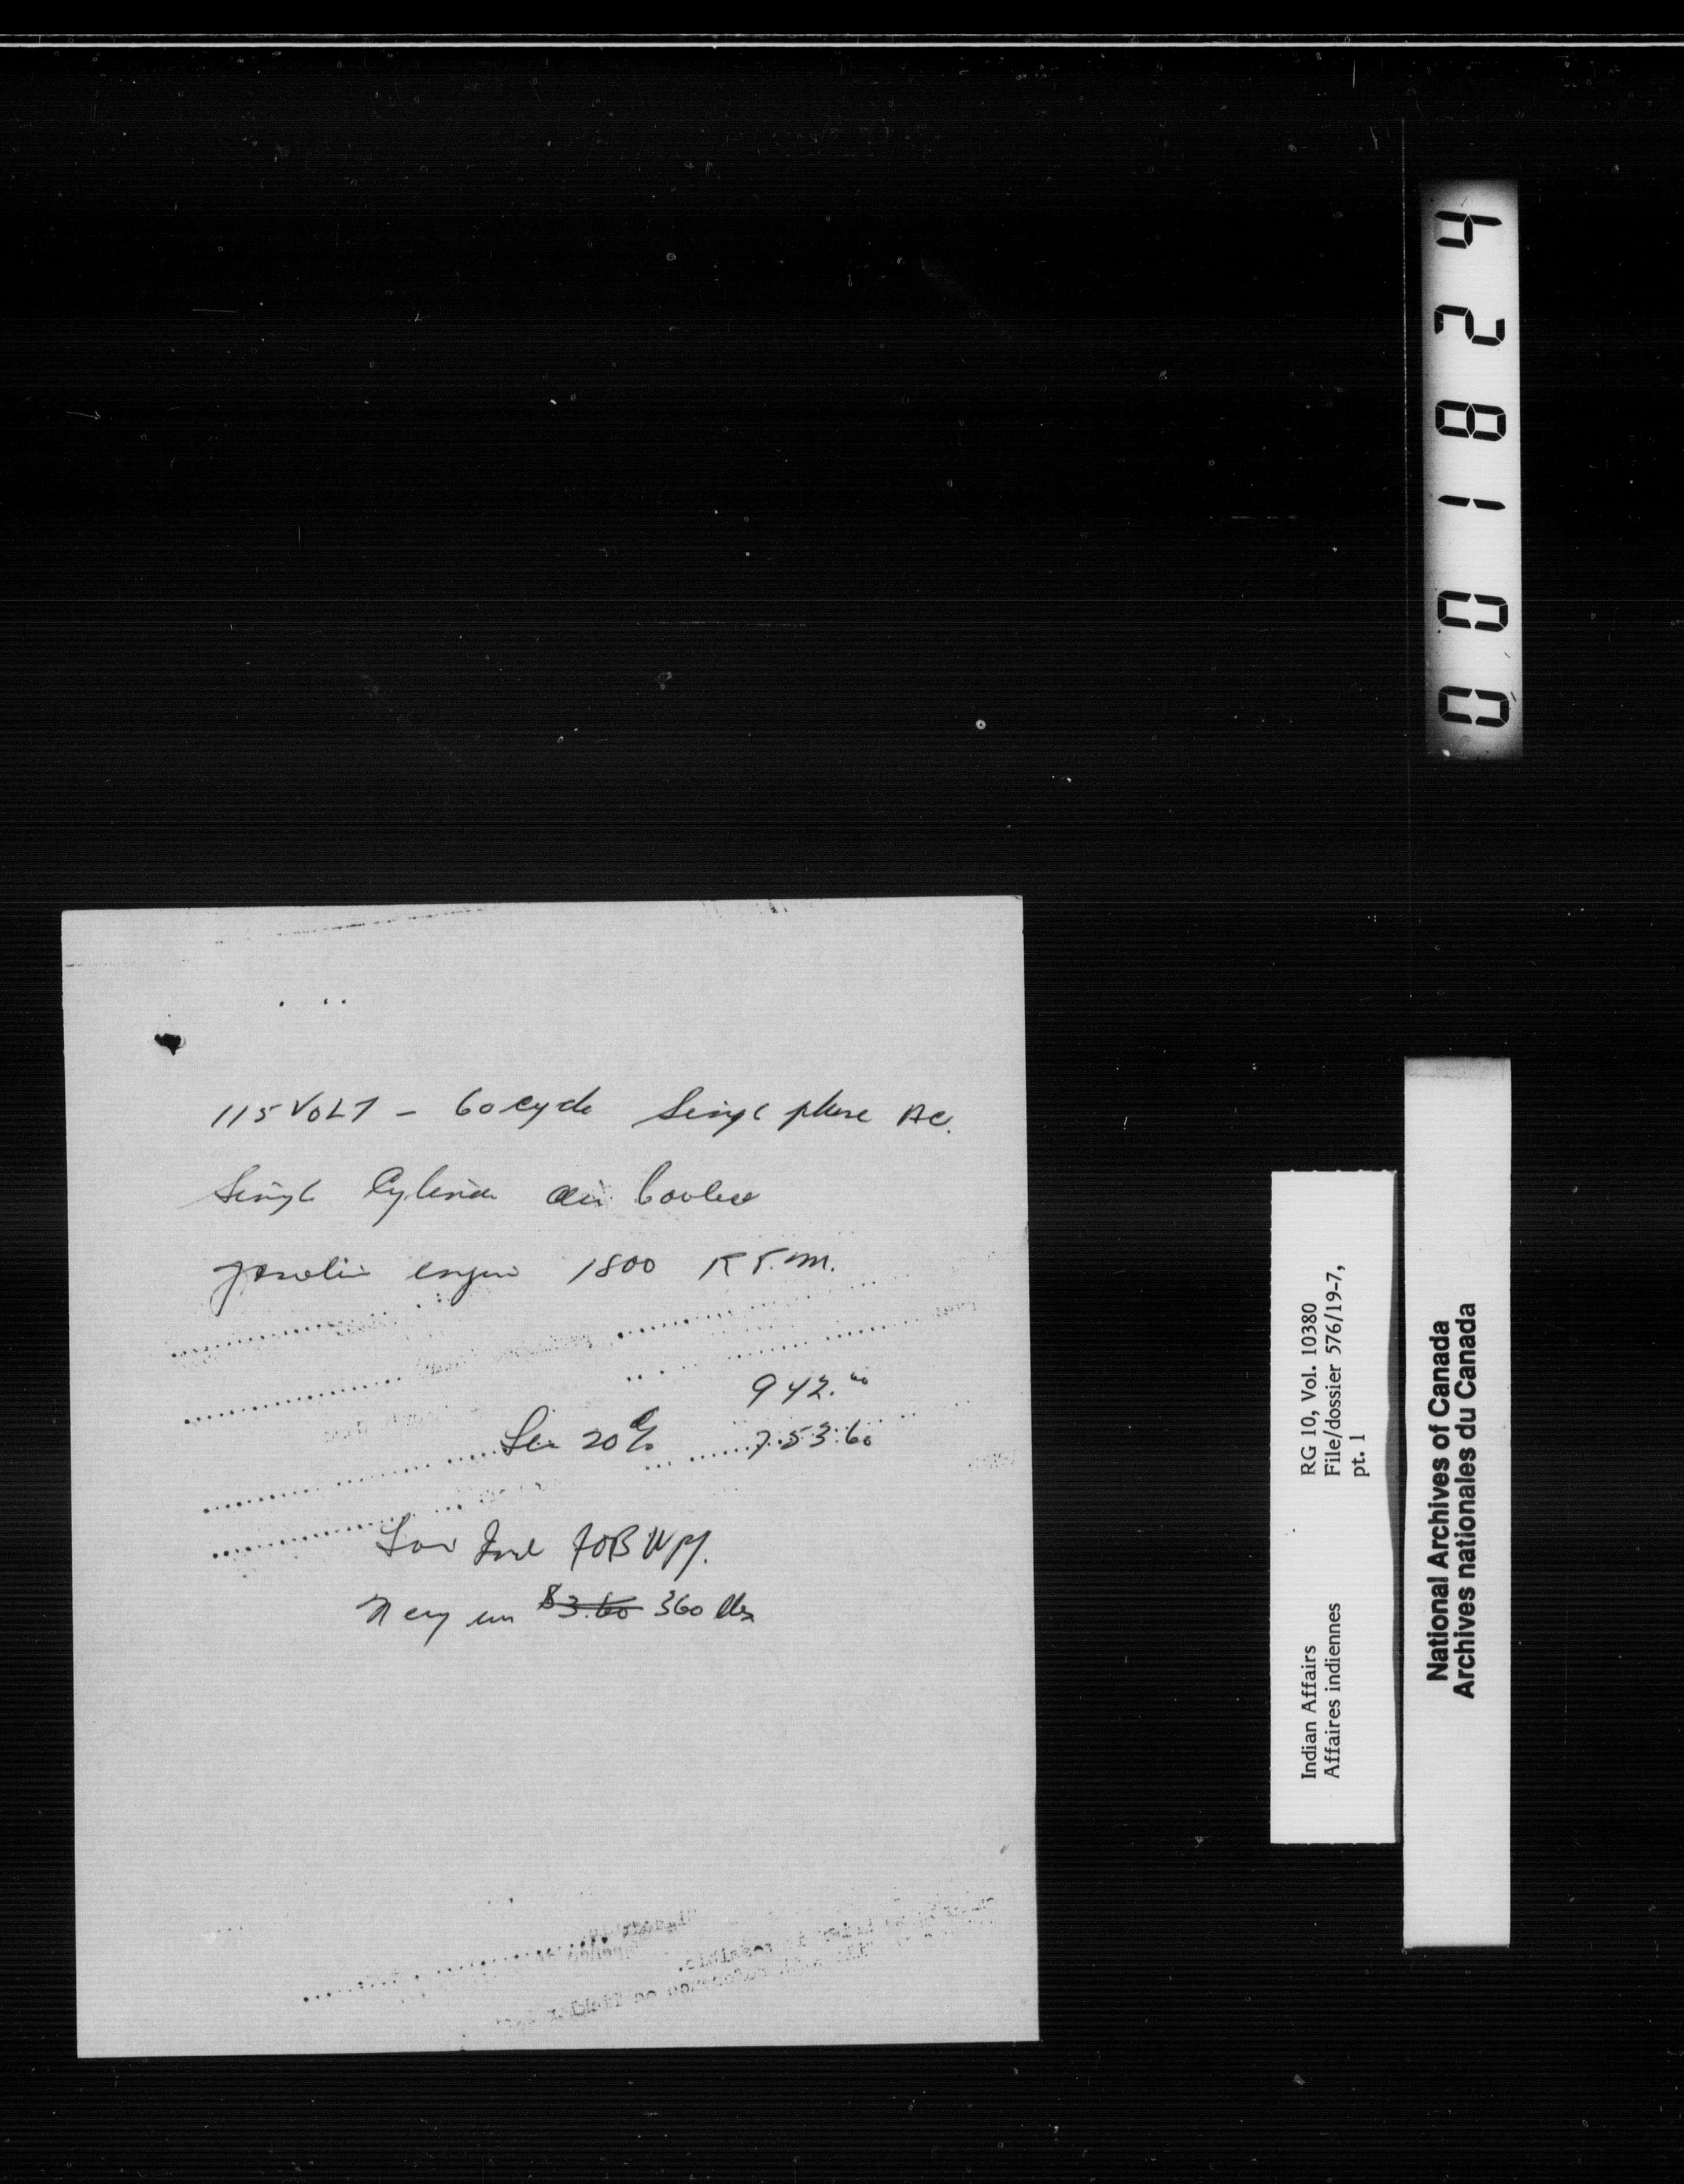 115 VOLT - 60 cycle Single phase AC.
Single Cylinder air Cooled
gasoline engine 1800 R.P.M.
942.00
Less 20% 753.60
FOB Wpg.
$3.60 360 lbs
001824
Indian Affairs RG 10, Vol. 10380
Affaires indiennes File/dossier 576/19-7,
pt. 1
National Archives of Canada
Archives nationales du Canada